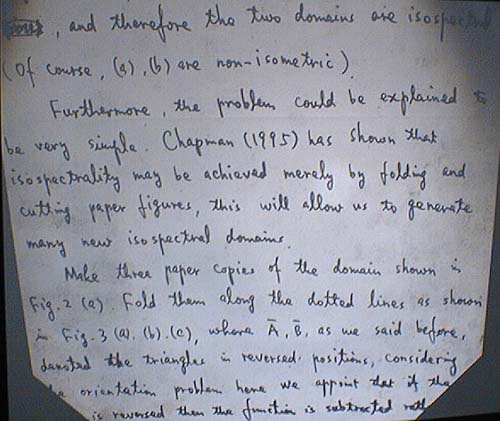 , and therefore the two domains are isospectral
(Of course, (a), (b) are non-isometric).
Furthermore, the problem could be explained to
be very simple. Chapman (1995) has shown that
isospectrality may be achieved merely by folding and
cutting paper figures, this will allow us to generate
many new isospectral domains.
Make three paper copies of the domain shown in
Fig. 2 (a). Fold them along the dotted lines as shown
in Fig. 3 (a). (b). (c), where A̅, B̅, as we said before,
denoted the triangles in reversed positions, considering
the orientation problem here we appoint that if the
is reversed then the function is subtracted